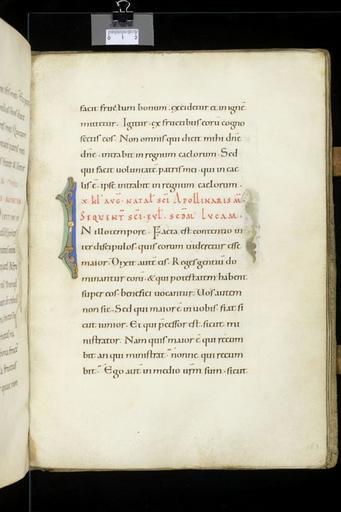 facit fructum bonum. excidetur et in ignē
mittetur. Igitur ex fructibus eorū cogno
scetis eos. Non omnis qui dicit mihi dnē
dnē. intrabit in regnum caelorum. Sed
qui facit voluntatē patris mei. qui in cae
lis ē. ipse intrabit in regnum caelorum.
x kl' aug. natal' sci Apollinaris m̄
Sequent sci evl'. scdm Lucam.
In illo tempore. Facta est contentio in
ter discipulos. quis eorum uideretur esse
maior. Dixit autē eis. Reges gentiū do
minantur eorū. & qui potestatem habent
super eos. benefici uocantur. Uos autem
non sic. Sed qui maior ē in uobis. fiat si
cut iunior. Et qui p̄cessor est. sicut mi
nistrator. Nam quis maior ē qui recum
bit an qui ministrat. nonne qui recum
bit. Ego aut in medio urm sum. sicut